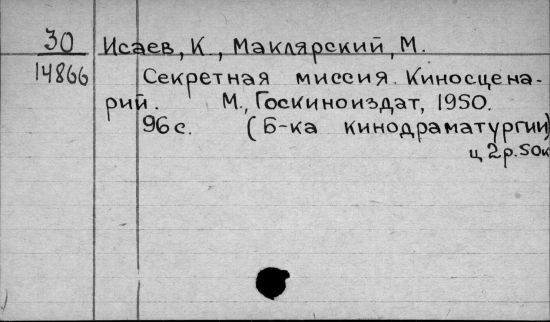 30 Исаев, К., Маклярский, М.
14866 Секретная миссия. Киносцена-
рий. М., Госкиноиздат, 1950.
96 с. (Б-ка кинодраматургии)
ц 2р.50к